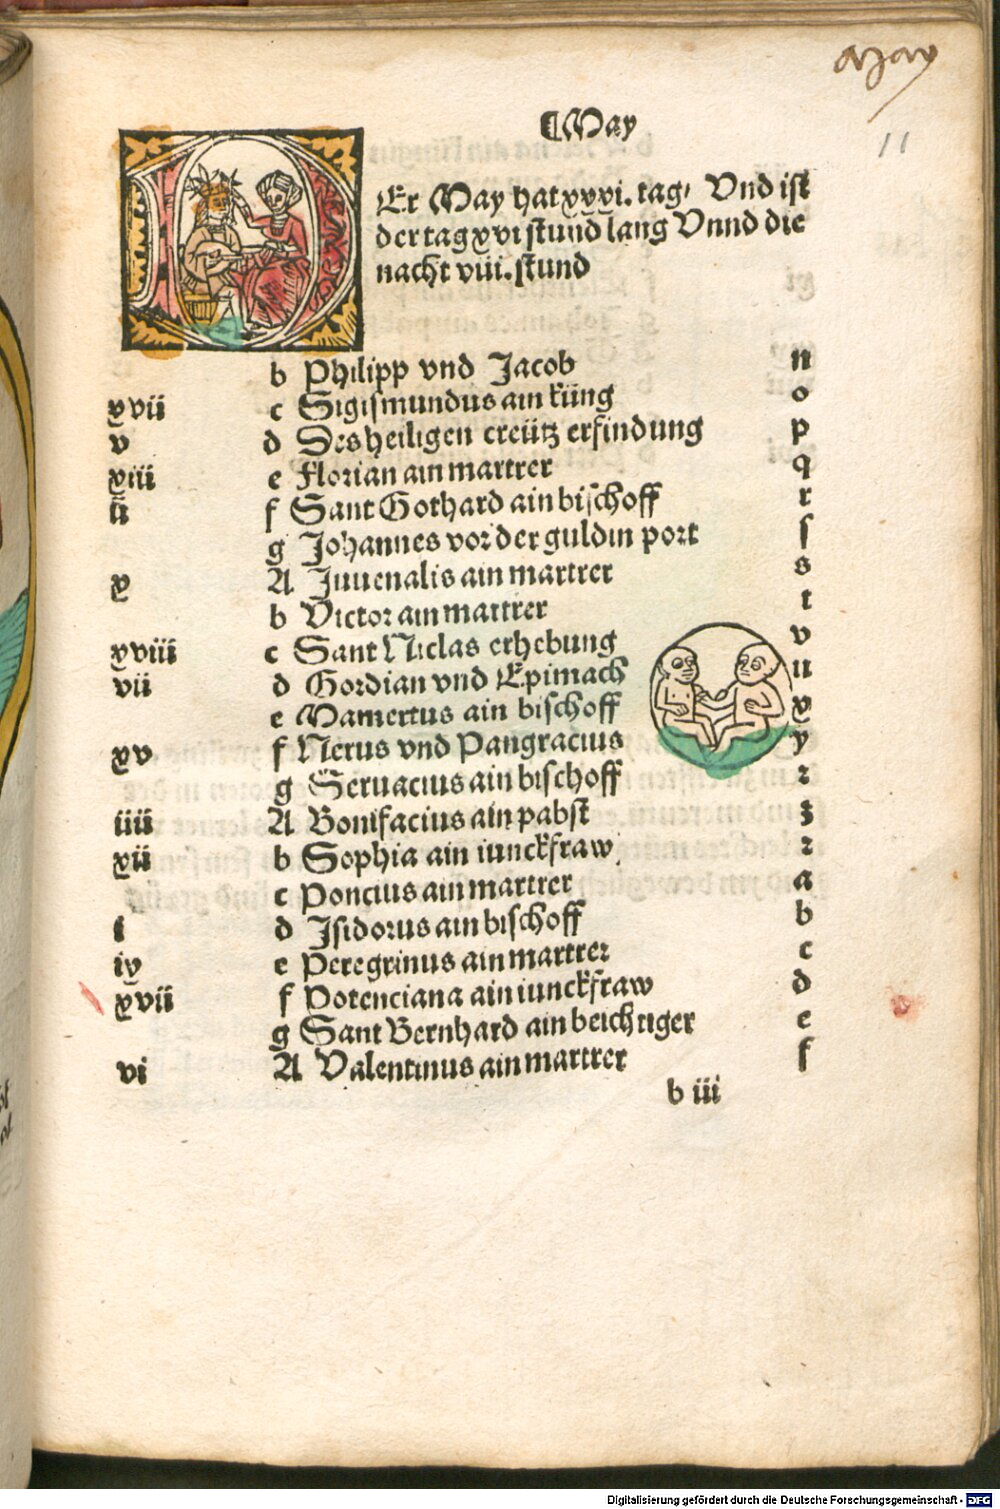 May
11
¶May
DEr May hat xxxi. tag, Vnd ist
der tag xvi stund lang Vnnd die
nacht viii. stund
b Philipp vnd Jacob n
xvii c Sigismundus ain küng o
v d Des heiligen creütz erfindung p
xiii e Florian ain martrer q
ii f Sant Gothard ain bischoff r
g Johannes vor der guldin port ſ
x A Juuenalis ain martrer s
b Victor ain martrer t
xviii c Sant Niclas erhebung v
vii d Gordian vnd Epimach u
e Mamertus ain bischoff x
xv f Nerus vnd Pangracius y
g Seruacius ain bischoff z
iiii A Bonifacius ain pabst ꝫ
xii b Sophia ain iunckfraw z
c Poncius ain martrer a
i d Jsidorus ain bischoff b
ix e Peregrinus ain martrer c
xvii f Potenciana ain iunckfraw d
g Sant Bernhard ain beichtiger e
vi A Valentinus ain martrer f
b iii
Digitalisierung gefördert durch die Deutsche Forschungsgemeinschaft - DFG